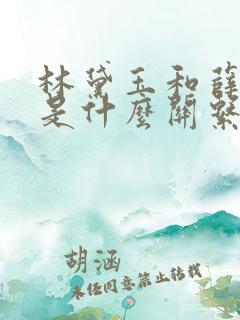 林黛玉和薛
是什麼關係
胡涵
未经同意禁止转载